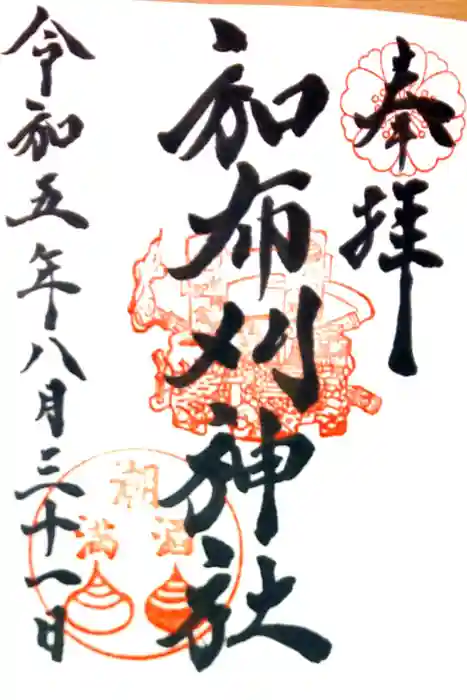 奉拝
加布刈神社
令和五年八月三十一日
潮
満